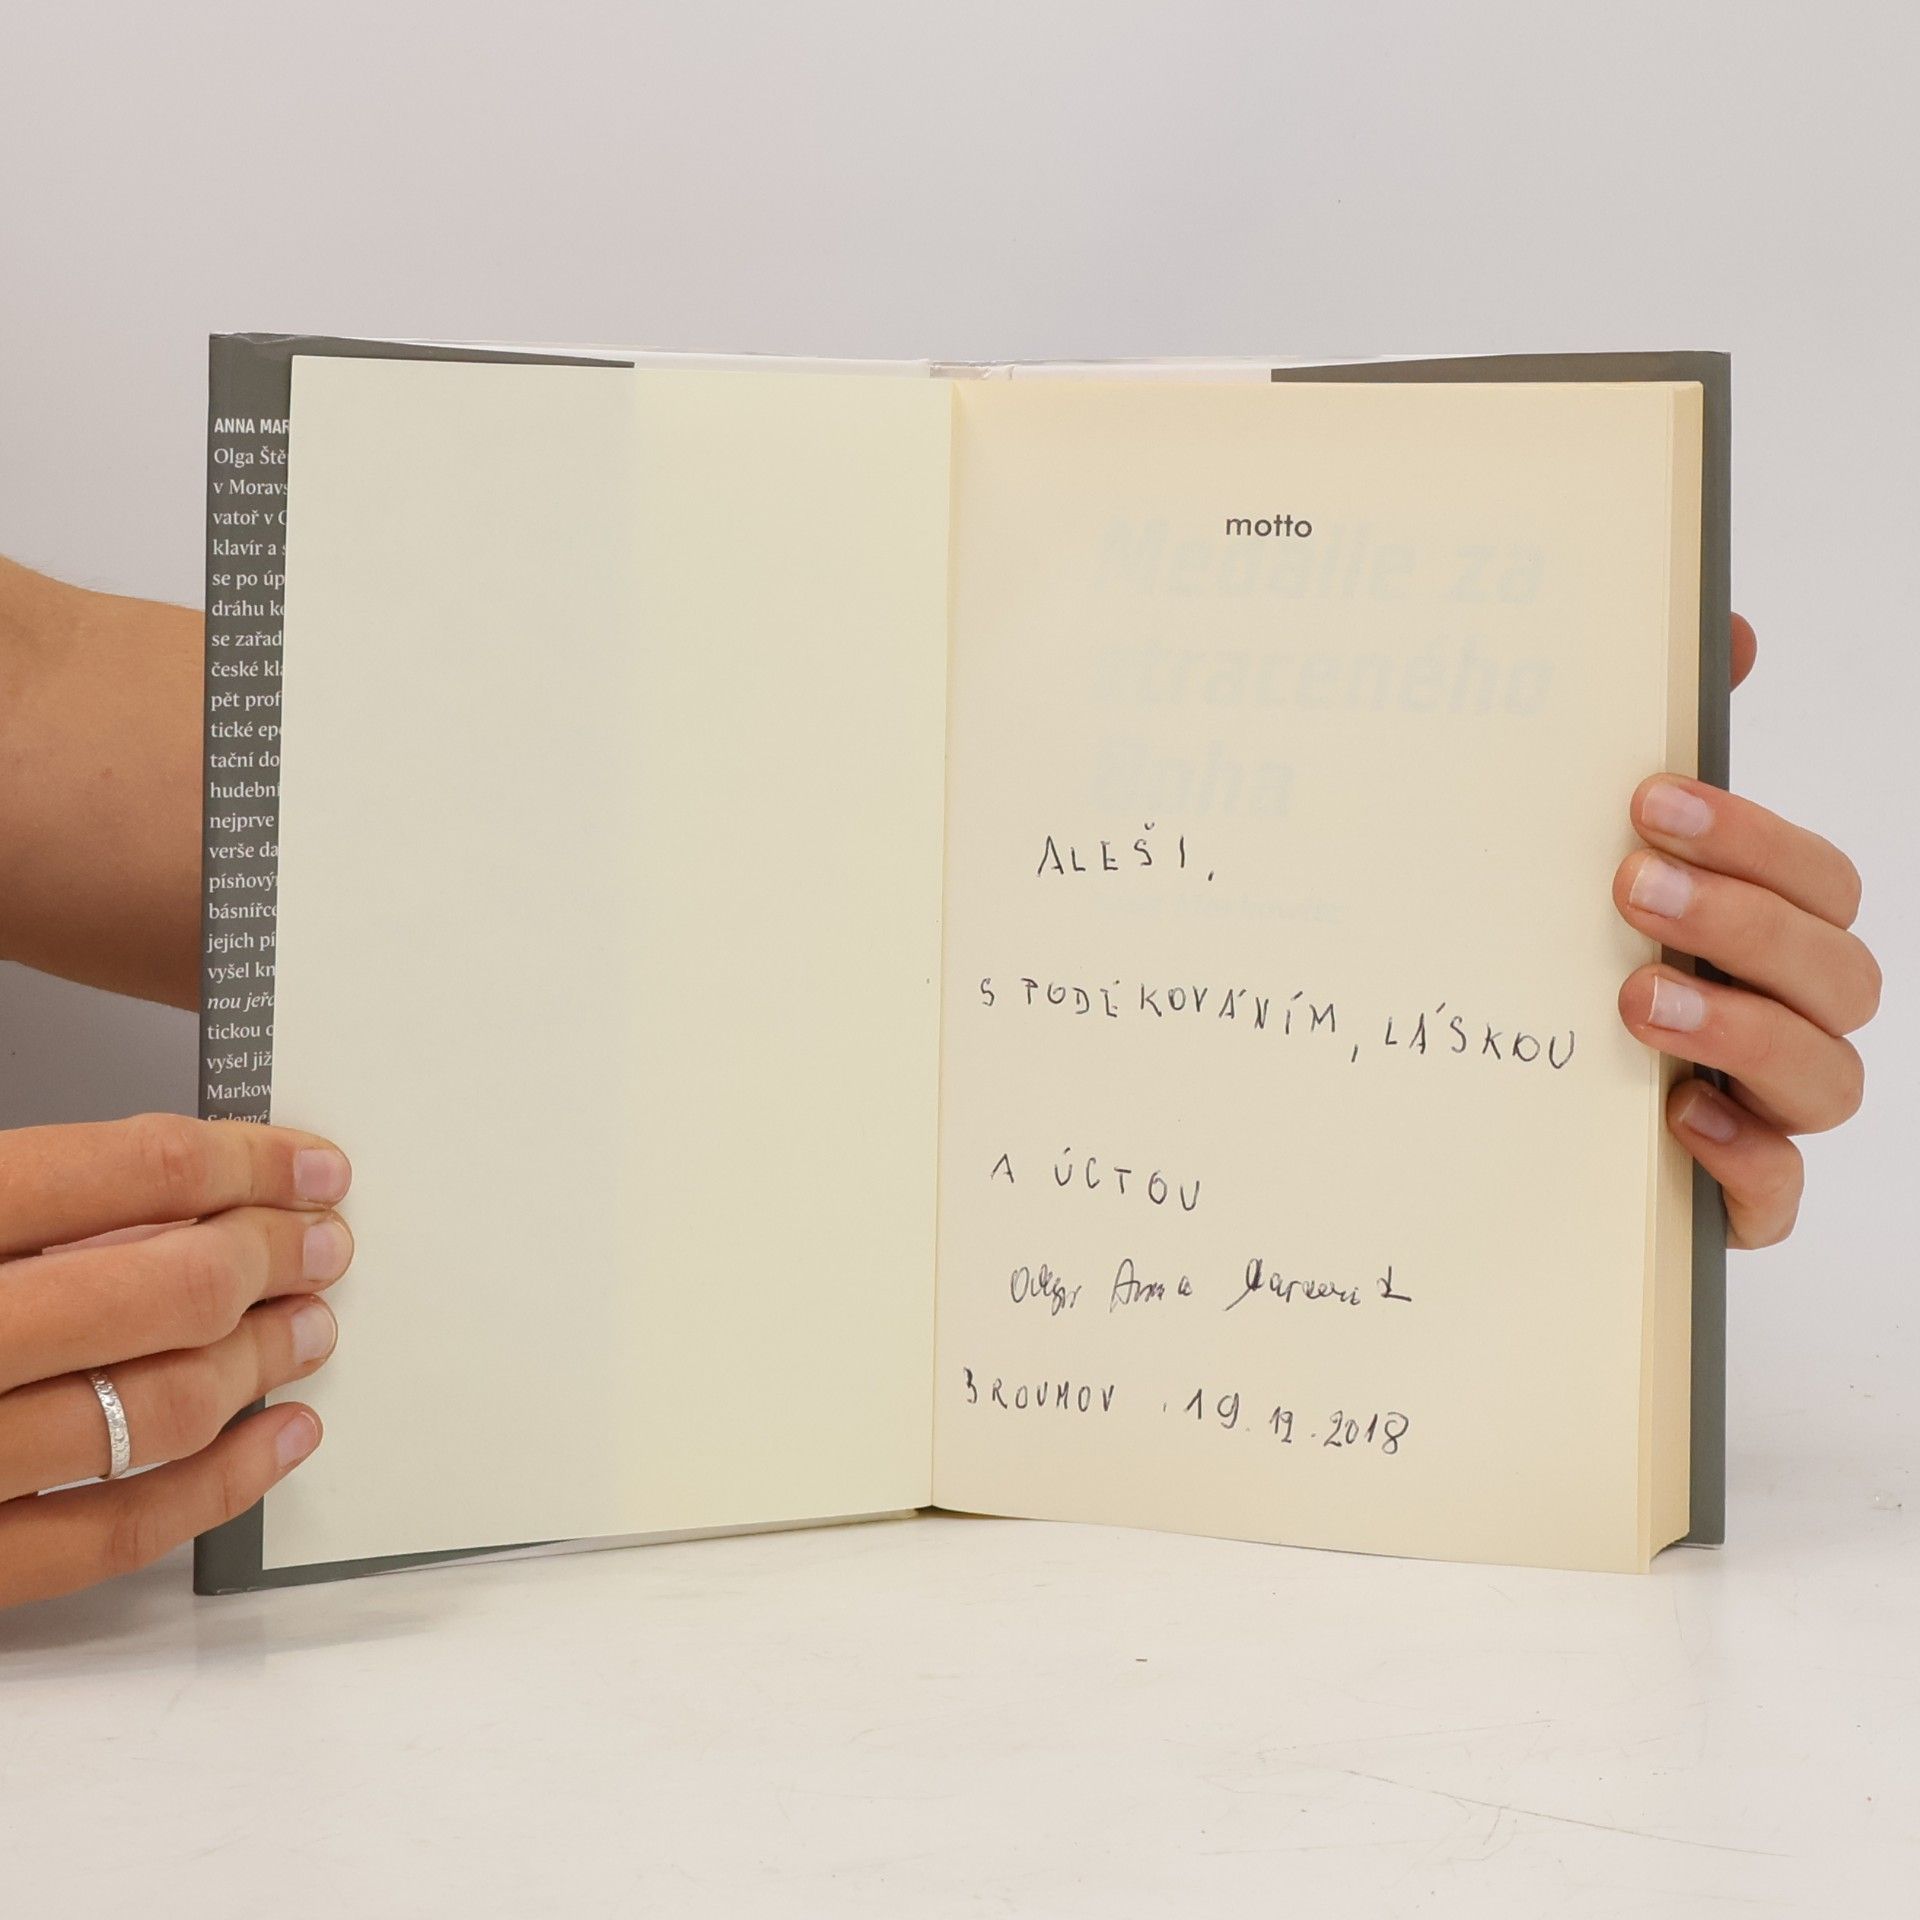 ANNA MAR
Olga Ště
v Moravs
vatoř v
klavír a s
se po úp
dráhu ko
se zařad
české kla
pět prof
tické epo
tační do
hudební
nejprve
verše da
písňový
básnířce
jejích pí
vyšel kn
nou jeřa
tickou
vyšel již
Markow
Salomé
motto
Medaile za
ztraceného
hocha
ALEŠI,
S PODĚKOVÁNÍM, LÁSKOU
A ÚCTOU
Olga Anna
BROUMOV . 19. 12. 2018